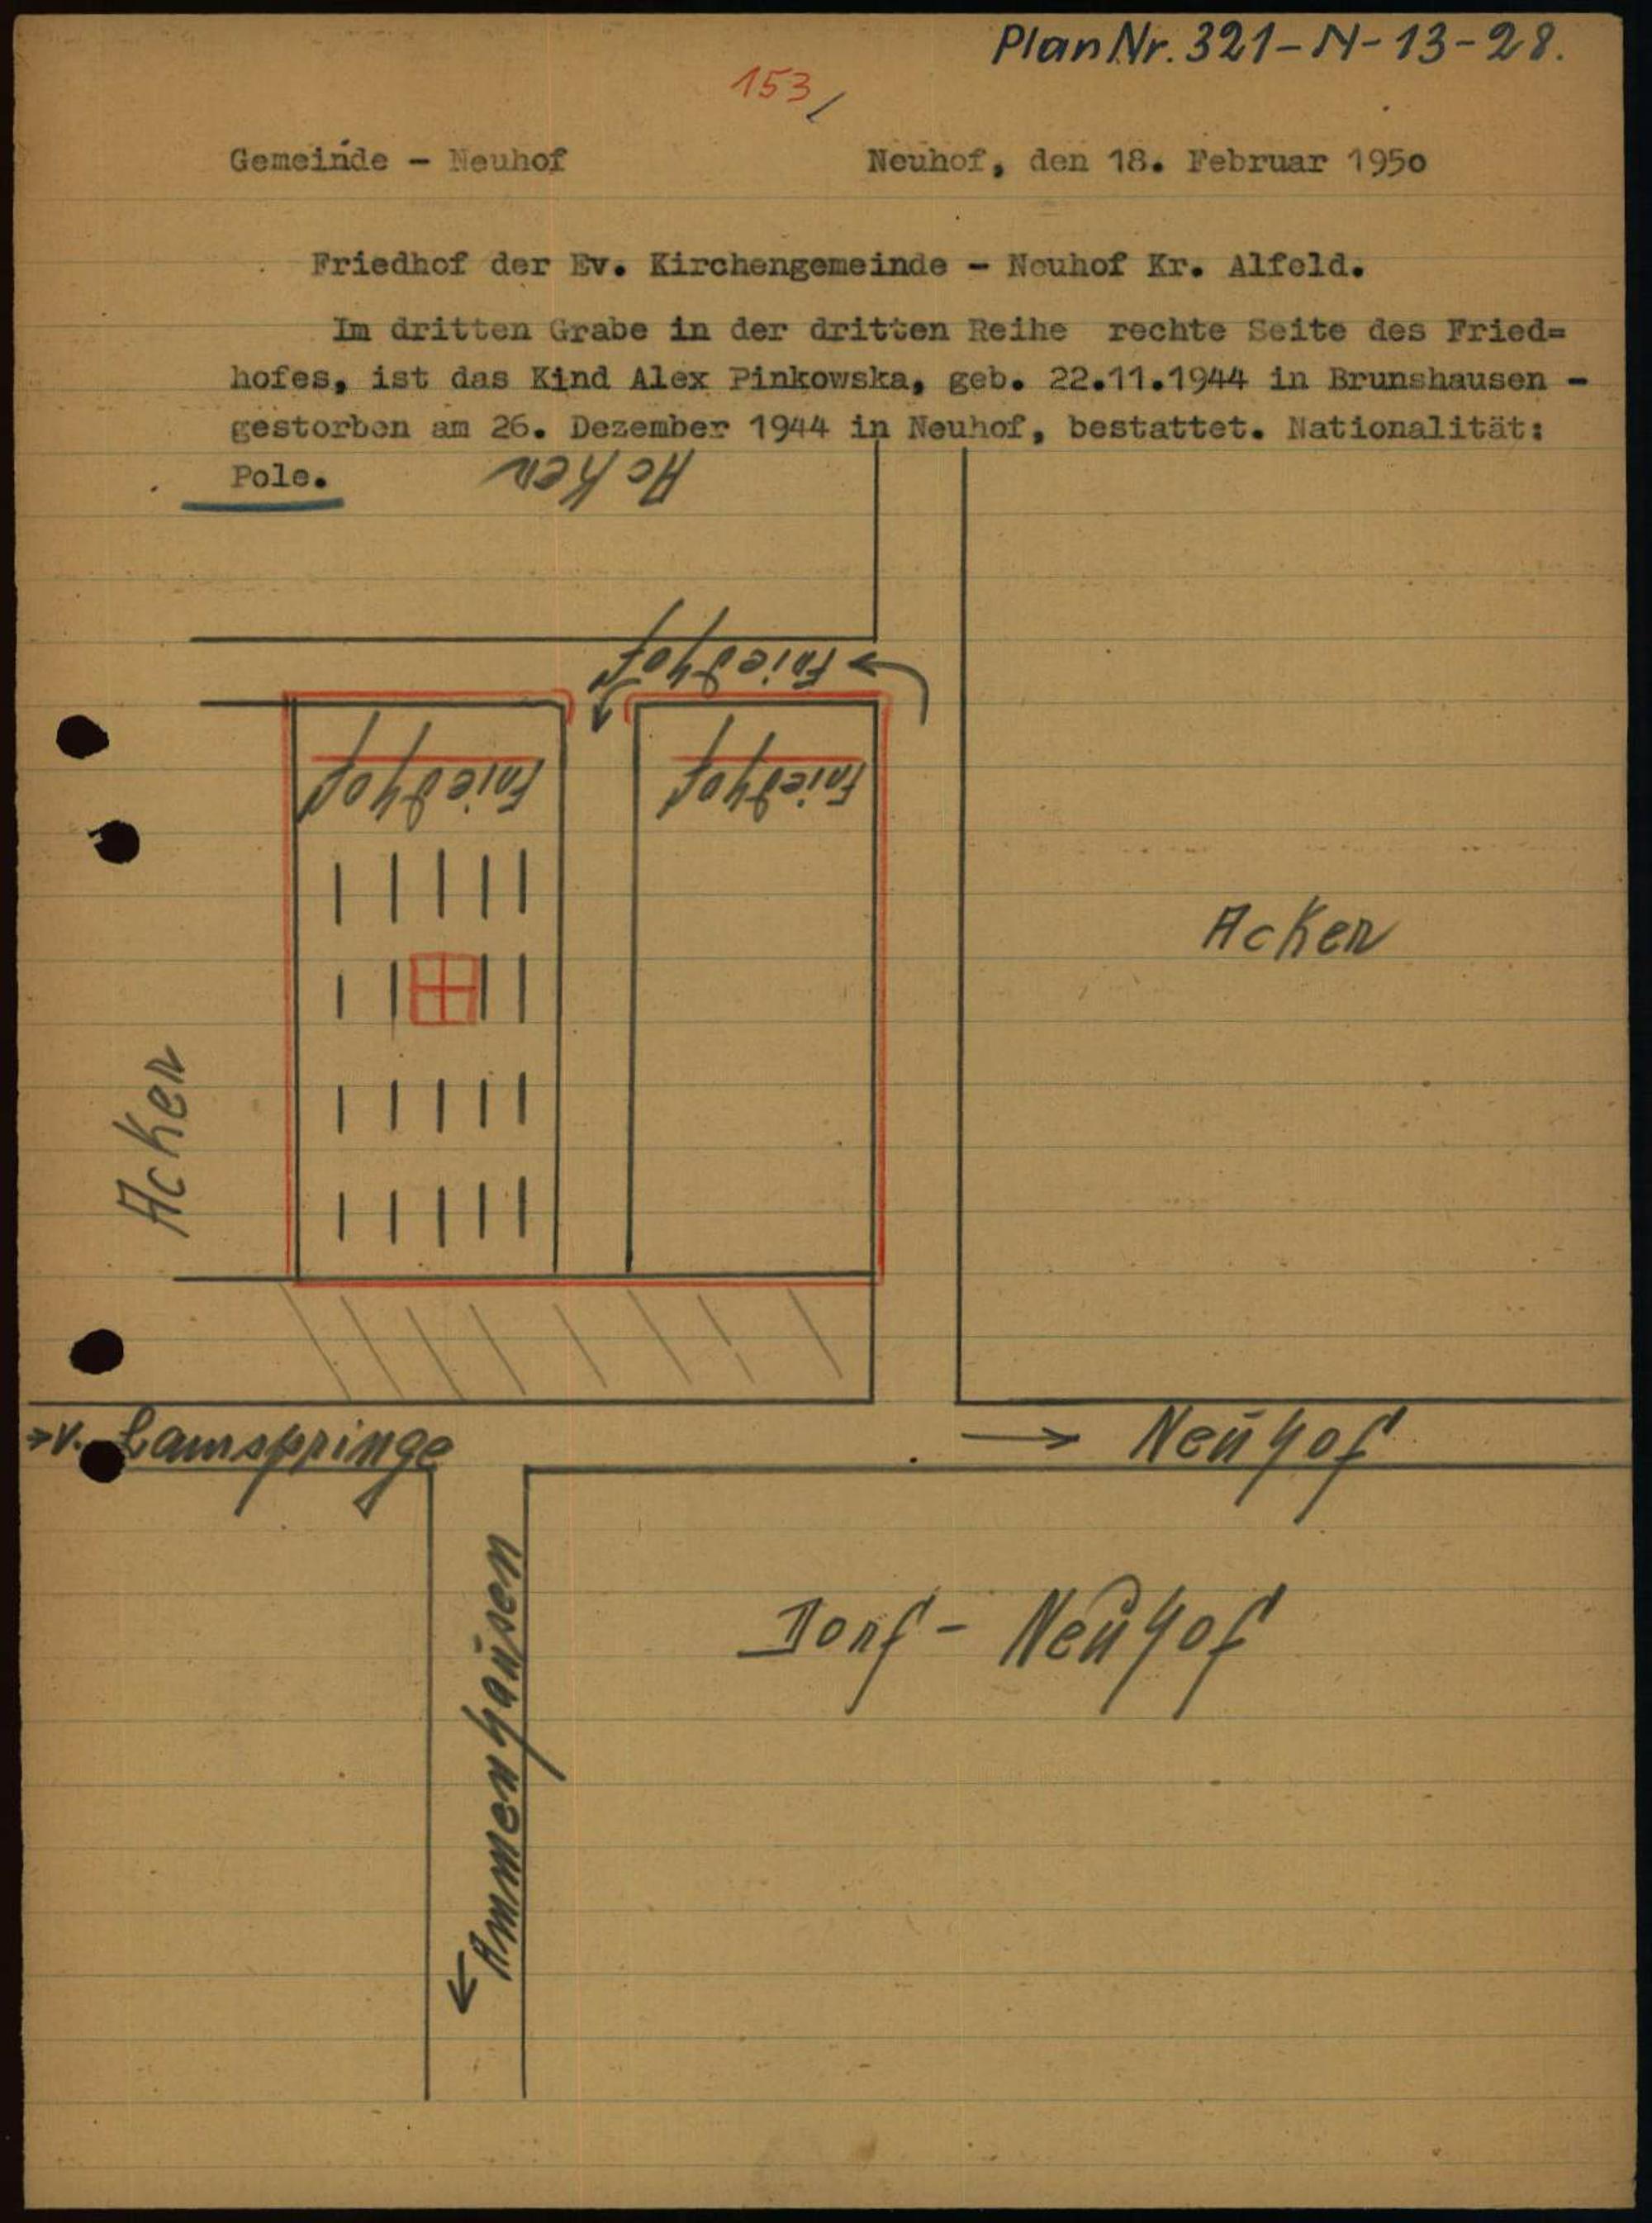 Plan Nr. 321-N-13-28.
153
Gemeinde - Neuhof
Neuhof, den 18. Februar 1950
Friedhof der Ev. Kirchengemeinde - Neuhof Kr. Alfeld.
Im dritten Grabe in der dritten Reihe rechte Seite des Fried=
hofes, ist das Kind Alex Pinkowska, geb. 22.11.1944 in Brunshausen -
gestorben am 26. Dezember 1944 in Neuhof, bestattet. Nationalität:
Pole.
Acker
Friedhof
Friedhof
Friedhof
Acker
Acker
v. Lamspringe
Neuhof
Ammenhausen
Dorf - Neuhof